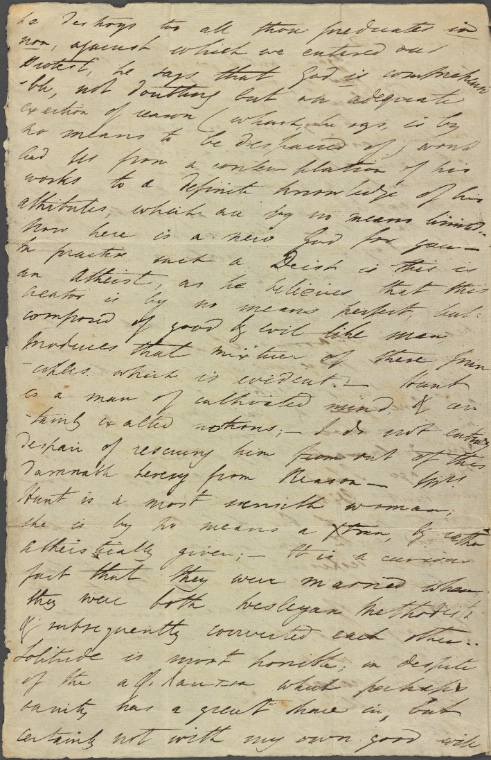 he destroys too all those predicates in
non, against which we entered our
Protest, he says that God is comprehen
-ible, not doubting but an adequate
exertion of reason (which, he says, is by
no means to be despaired of) would
lead us from a contemplation of his
works to a definite knowledge of his
attributes, which are by no means limited.
Now here is a new God for you —
In practise such a Deist is this is
an Atheist, as he believes that this
creator is by no means perfect, but
composed of good & evil like man
produces that mixture of these prin
-ciples which is evident. — Hunt
is a man of cultivated mind & cer
-tainly exalted notions; — I do not entirely
despair of rescuing him from out of this
Damnable heresy from Reason — Mrs
Hunt is a most sensible woman,
she is by no means a Xtian, by rather
atheistically given; — It is a curious
fact that they were married when
they were both Wesleyan Methodists
& subsequently converted each other. —
Solitude is most horrible; in despite
of the which perhaps
vanity has a great share in, but
certainly not with my own good will